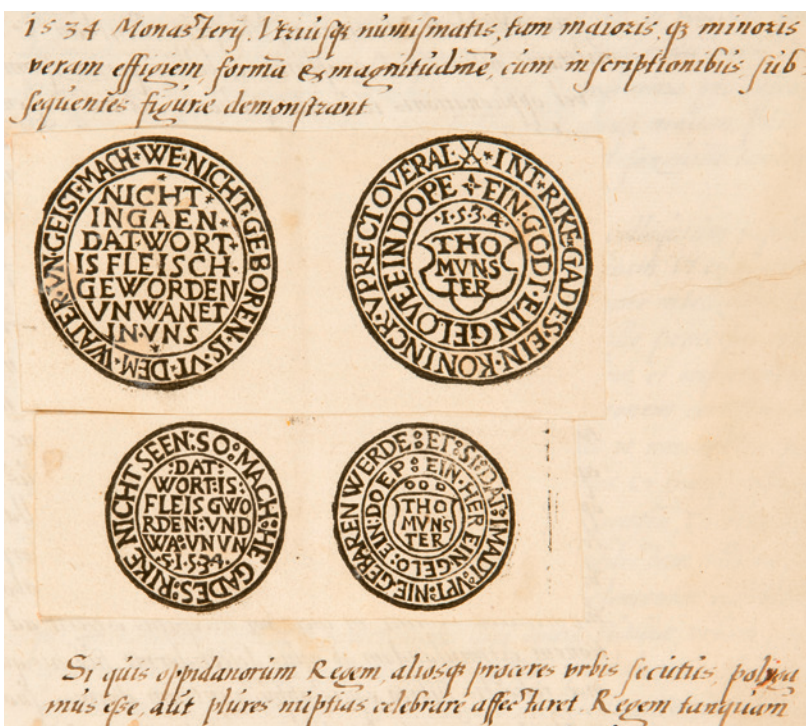 1534 Monastery. Utriusq; numismatis, tam maioris, q; minoris
veram effigiem, formã & magnitudinẽ, cum inscriptionibus, sub-
sequentes figuræ demonstrant
WE·NICHT·GEBOREN·IS·VT·DEM·WATER·VN·GEIST·MACH·
NICHT·
INGAEN·
DAT·WORT·
IS FLEISCH·
GEWORDEN
VN WANET
IN·VNS
INT·RIKE·GADES·EIN·KONINCK·VPRECT OVERAL
EIN·GODT·EIN GELOVE EIN DOPE
·1·5·3·4·
THO
MVNS
TER
SO MACH HE GADES RIKE NICHT SEEN
:DAT:
WORT:IS:
FLEIS GWO
RDEN:VND
WA:VN VN
S·1·5·3·4·
ET:SI:DAT:IMADT:VPT:NIE·GEBAREN WERDE
EIN·HER EIN GELO:EIN:DOEP:
THO
MVNS
TER
Si quis oppidanorum Regem, aliosq; proceres urbis secutus, polyga
mus esse, aut plures nuptias celebrare affectaret. Regem tanquam